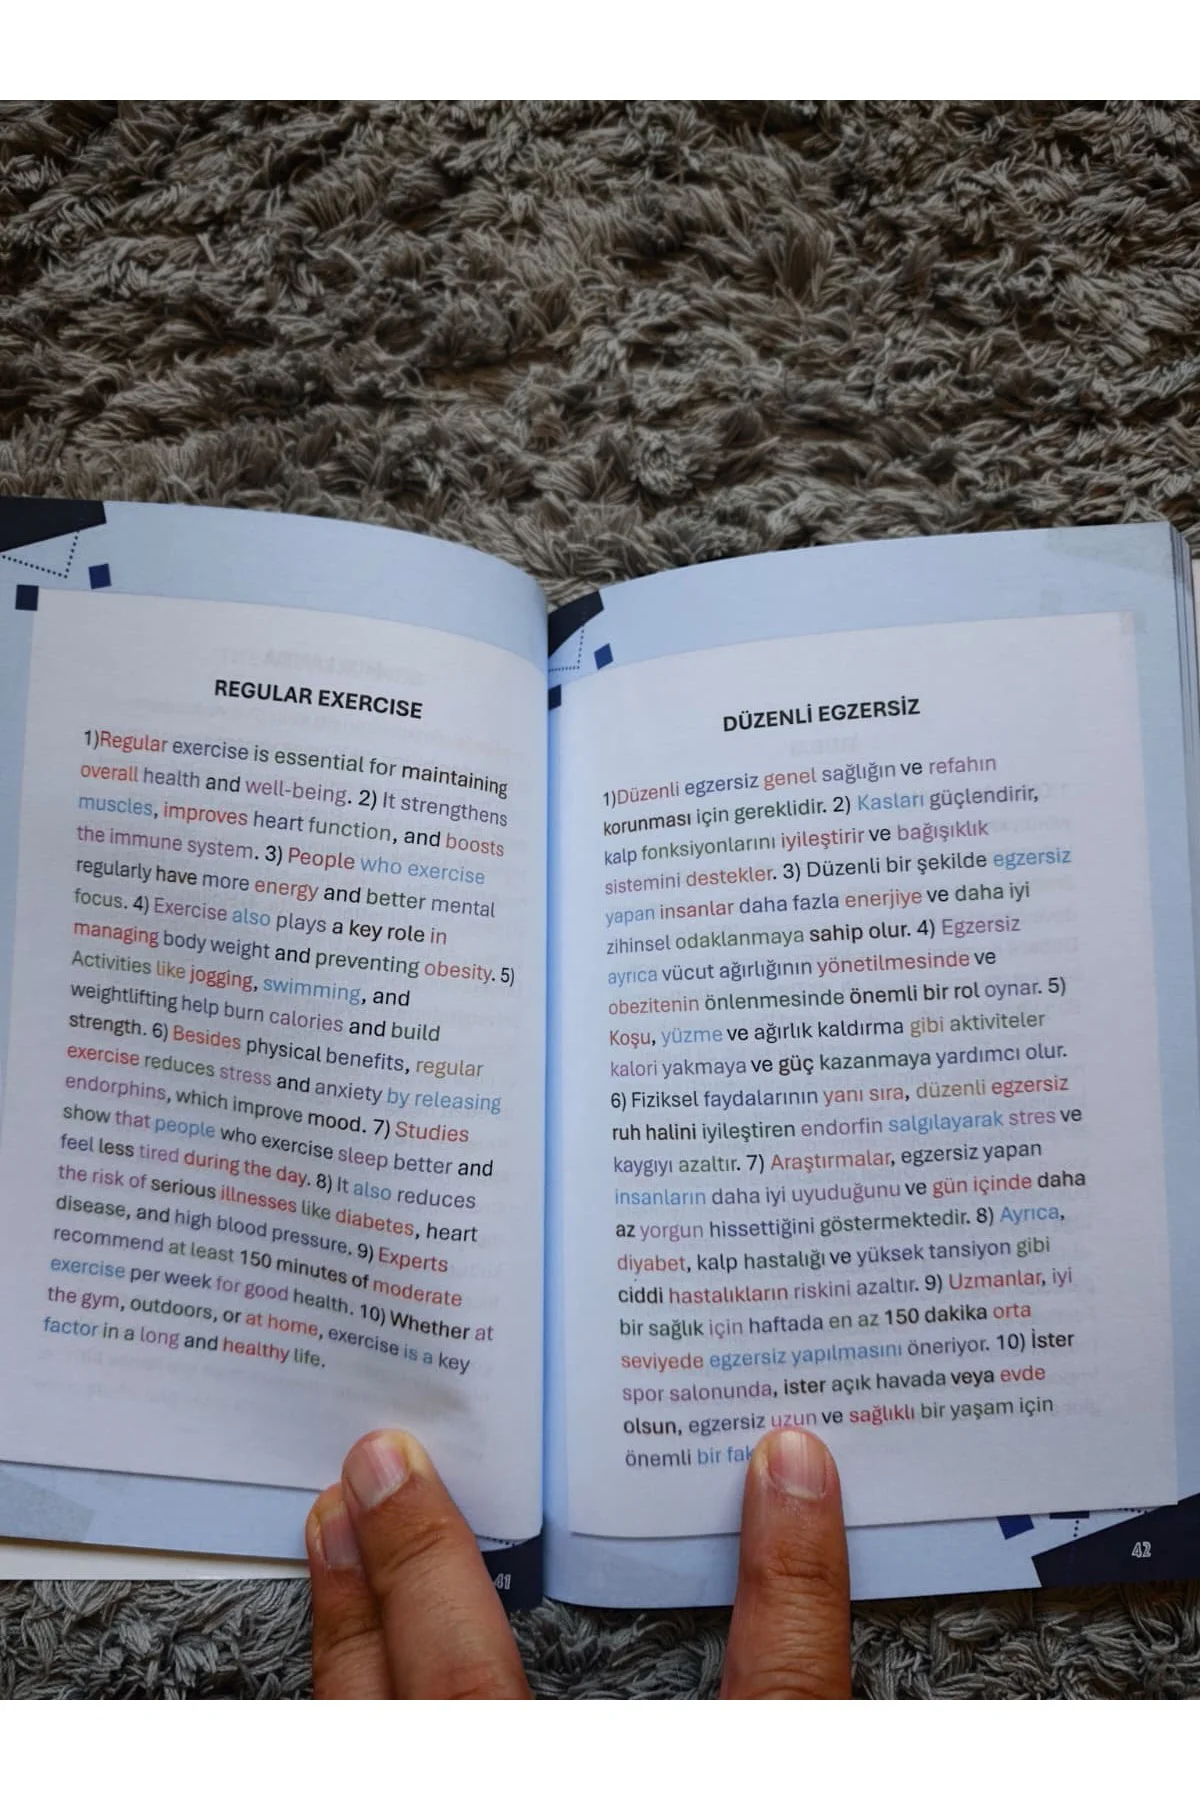 REGULAR EXERCISE
1)Regular exercise is essential for maintaining
overall health and well-being. 2) It strengthens
muscles, improves heart function, and boosts
the immune system. 3) People who exercise
regularly have more energy and better mental
focus. 4) Exercise also plays a key role in
managing body weight and preventing obesity. 5)
Activities like jogging, swimming, and
weightlifting help burn calories and build
strength. 6) Besides physical benefits, regular
exercise reduces stress and anxiety by releasing
endorphins, which improve mood. 7) Studies
show that people who exercise sleep better and
feel less tired during the day. 8) It also reduces
the risk of serious illnesses like diabetes, heart
disease, and high blood pressure. 9) Experts
recommend at least 150 minutes of moderate
exercise per week for good health. 10) Whether at
the gym, outdoors, or at home, exercise is a key
factor in a long and healthy life.
41
DÜZENLİ EGZERSİZ
1)Düzenli egzersiz genel sağlığın ve refahın
korunması için gereklidir. 2) Kasları güçlendirir,
kalp fonksiyonlarını iyileştirir ve bağışıklık
sistemini destekler. 3) Düzenli bir şekilde egzersiz
yapan insanlar daha fazla enerjiye ve daha iyi
zihinsel odaklanmaya sahip olur. 4) Egzersiz
ayrıca vücut ağırlığının yönetilmesinde ve
obezitenin önlenmesinde önemli bir rol oynar. 5)
Koşu, yüzme ve ağırlık kaldırma gibi aktiviteler
kalori yakmaya ve güç kazanmaya yardımcı olur.
6) Fiziksel faydalarının yanı sıra, düzenli egzersiz
ruh halini iyileştiren endorfin salgılayarak stres ve
kaygıyı azaltır. 7) Araştırmalar, egzersiz yapan
insanların daha iyi uyuduğunu ve gün içinde daha
az yorgun hissettiğini göstermektedir. 8) Ayrıca,
diyabet, kalp hastalığı ve yüksek tansiyon gibi
ciddi hastalıkların riskini azaltır. 9) Uzmanlar, iyi
bir sağlık için haftada en az 150 dakika orta
seviyede egzersiz yapılmasını öneriyor. 10) İster
spor salonunda, ister açık havada veya evde
olsun, egzersiz uzun ve sağlıklı bir yaşam için
önemli bir
42